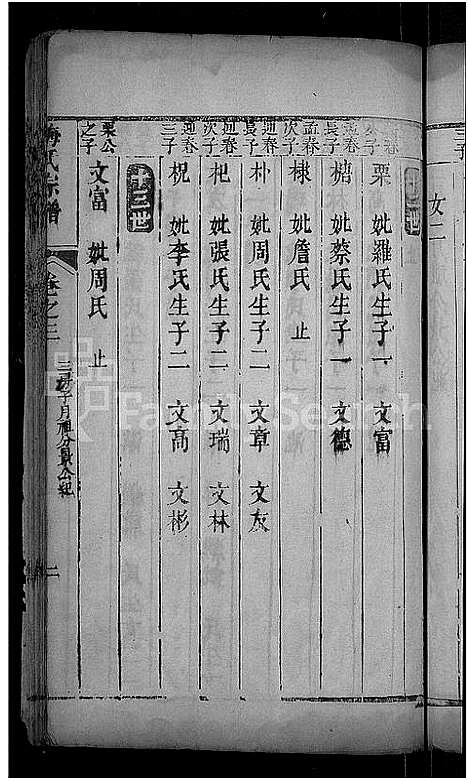 三子
女二
十二世
春
長子
栗 妣羅氏生子一 文富
孟春
長子
楛 妣蔡氏生子一 文德
孟春
次子
棣 妣詹氏 止
迎春
長子
朴 妣周氏生子二 文章 文灰
迎春
次子
杞 妣張氏生子二 文瑞 文林
迎春
三子
柷 妣李氏生子二 文高 文彬
十三世
栗公
之子
文富 妣周氏 止
梅氏宗譜
卷之三
三房子月祖分
公紀
二
FamilySearch